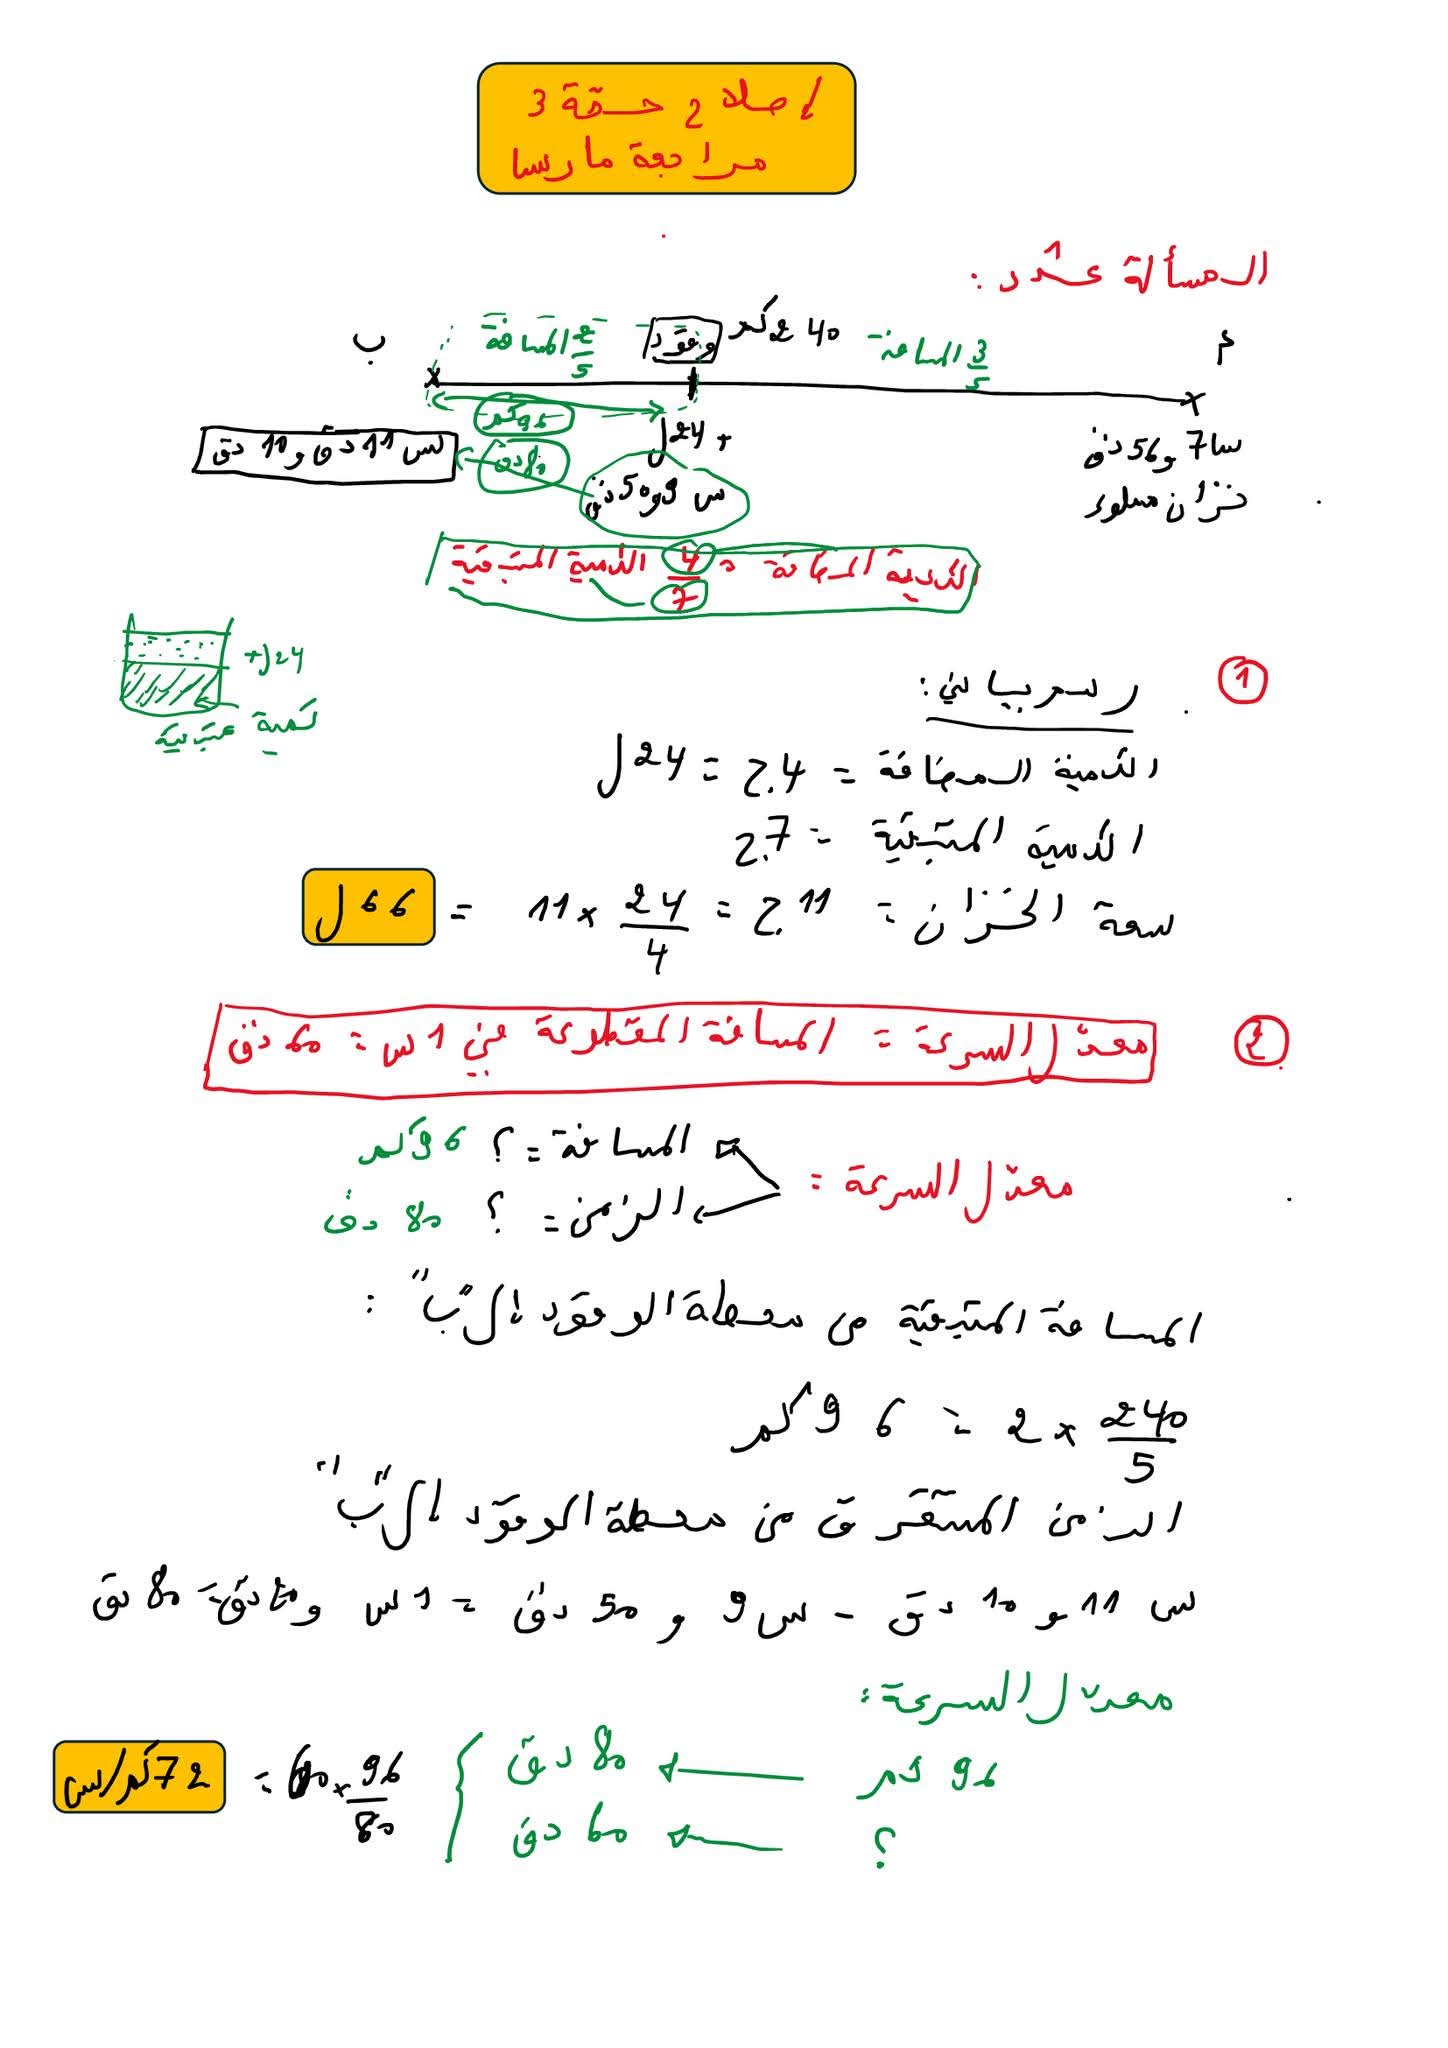 إصلاح حصّة 3
مراجعة مارسا
المسألة عدد 1 :
ب
2/5 المسافة
وقود
240 كم
3/5 المسافة
أ
96 كم
+ 24 ل
س 11 دق و 10 دق
80 دق
س 9 و 50 دق
سا 7 و 56 دق
خزان مملوء
الكمية المضافة = 4/7 الكمية المتبقية
+ 24 ل
كمية متبقية
1
رسم بياني :
الكمية المضافة = 4 ج = 24 ل
الكمية المتبقية = 7 ج
سعة الخزان = 11 ج = 24/4 × 11 = 66 ل
2
معدّل السرعة = المسافة المقطوعة في 1 س = 60 دق
معدّل السرعة :
المسافة = ؟ 96 كم
الزمن = ؟ 80 دق
المسافة المتبقية من محطة الوقود إلى "ب" :
240/5 × 2 = 96 كم
الزمن المستغرق من محطة الوقود إلى "ب"
س 11 و 10 دق - س 9 و 50 دق = 1 س و 20 دق = 80 دق
معدّل السرعة :
96 كم ← 80 دق
؟ ← 60 دق
96/80 × 60 = 72 كم/س